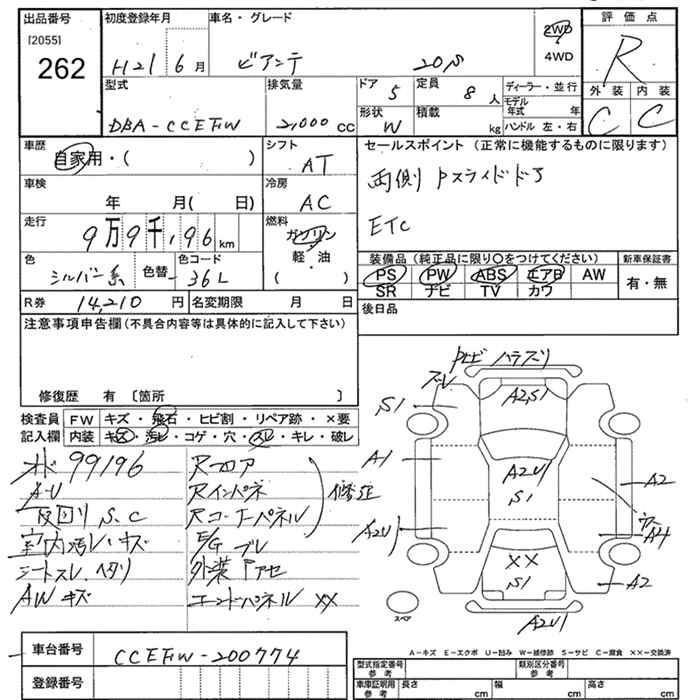 出品番号
[2055]
262
初度登録年月
H21 6月
車名・グレード
ビアンテ 20S
2WD
4WD
評価点
R
外装 内装
C C
型式
DBA-CCEFW
排気量
2,000 cc
ドア
5
定員
8 人
形状
W
積載
kg
ディーラー・並行
モデル年式 年
ハンドル 左・右
車歴
自家用・( )
シフト
AT
車検
年 月( 日)
冷房
AC
走行
9万9千,196 km
燃料
ガソリン
軽・油
( )
色
シルバー系
色替
色コード
36L
R券 14,210 円
名変期限 月 日
セールスポイント (正常に機能するものに限ります)
両側 Pスライドドア
ETC
装備品 (純正品に限り○をつけてください)
PS PW ABS エアB AW
SR ナビ TV カワ
新車保証書
有・無
後日品
注意事項申告欄 (不具合内容等は具体的に記入して下さい)
修復歴 有 〔箇所 〕
検査員記入欄
FW キズ・飛石・ヒビ割・リペア跡・×要
内装 キズ・汚レ・コゲ・穴・スレ・キレ・破レ
オド 99196
A-U
下回り S、C
室内汚レ・キズ
シートスレ、ヘタリ
AWキズ
Rフロア
Rインパネ
Rコーナーパネル
修正
E/G ブレ
外装 アセ
エンドパネル ××
トビ ハラズリ
ズレ
S1
A2,S1
A1
A2U1
S1
A2
A2U1
A4
××
S1
A2
A2U1
スペア
A－キズ E－エクボ U－凹み W－補修跡 S－サビ C－腐食 ××－交換済
車台番号
CCEFW-200774
登録番号
型式指定番号 参考
類別区分番号 参考
車庫証明用 参考
長さ cm
幅 cm
高さ cm